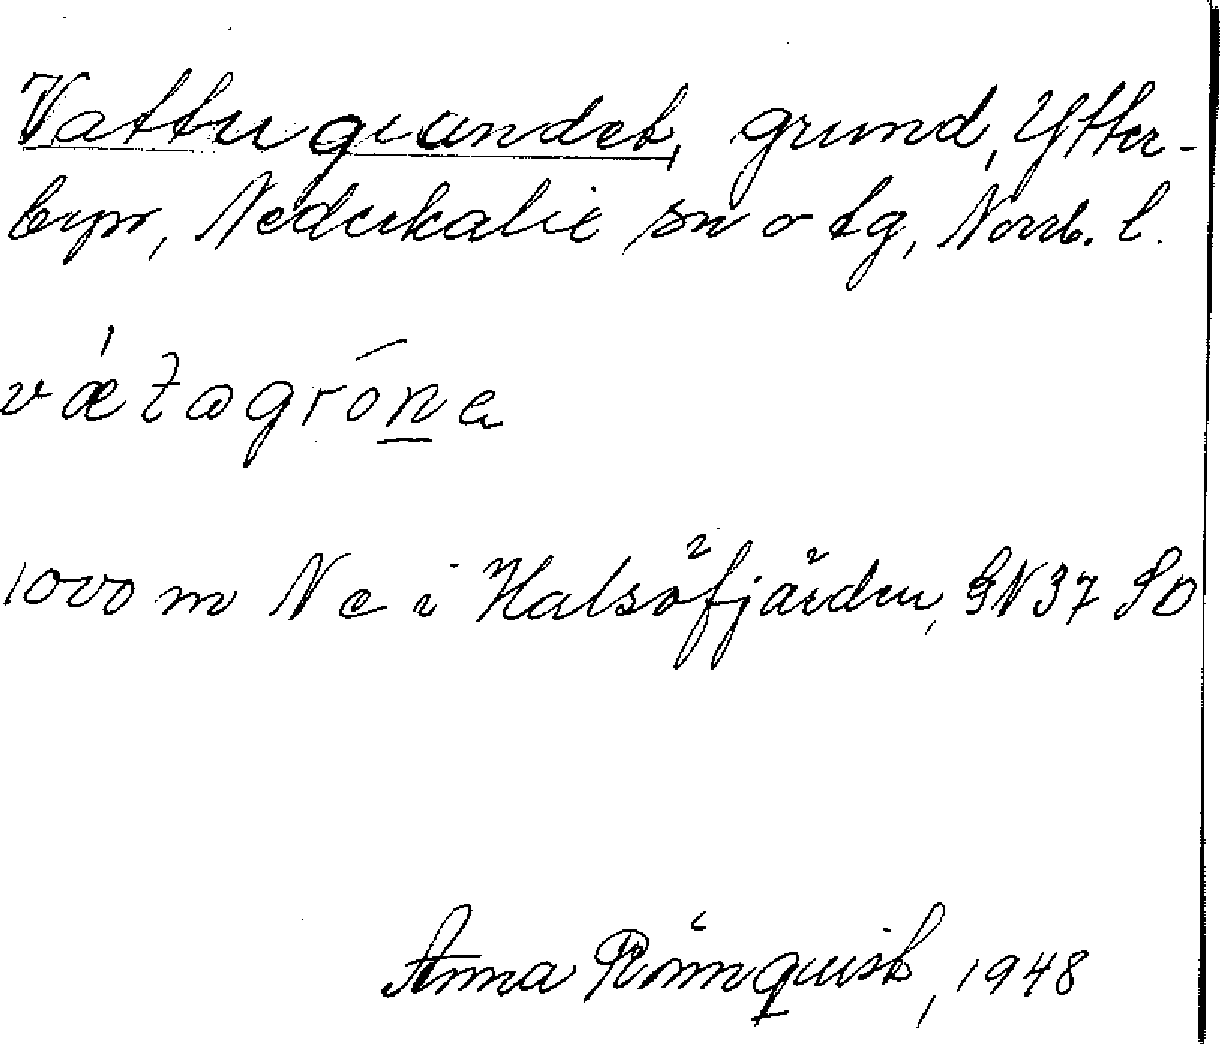 Vattergrundet, grund, Ytter-
byn, Nederkalix sn o tg, Norrb. l.
vætagróna
1000 m N e i Halsöfjärden, GN37 SO
Anna Rönnquist, 1948